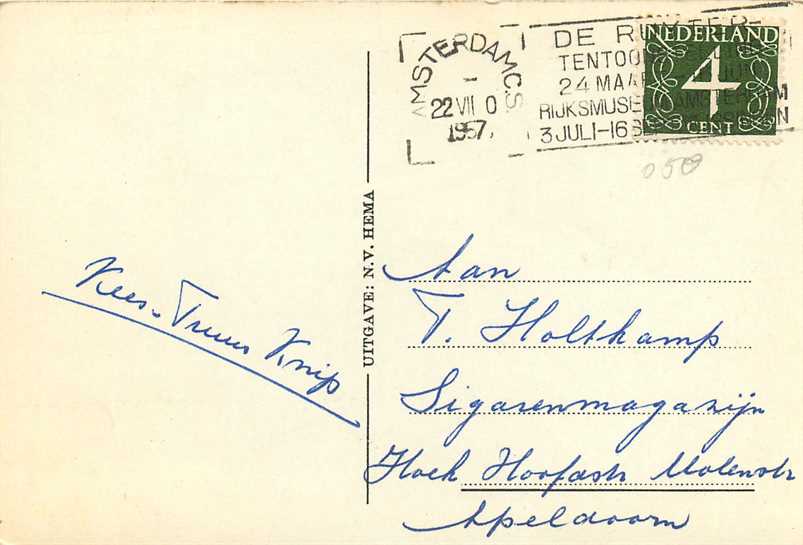 AMSTERDAM C.S.
22 VII 0
1957
DE RUYTER-
24 MAA
RIJKSMUSEU AMSTERDAM
3 JULI-16 SE
NEDERLAND
4
CENT
050
UITGAVE: N.V. HEMA
Kees-Truus Knip
Aan
T. Holtkamp
Sigarenmagazijn
Hoek Hoofdstr Molenstr
Apeldoorn